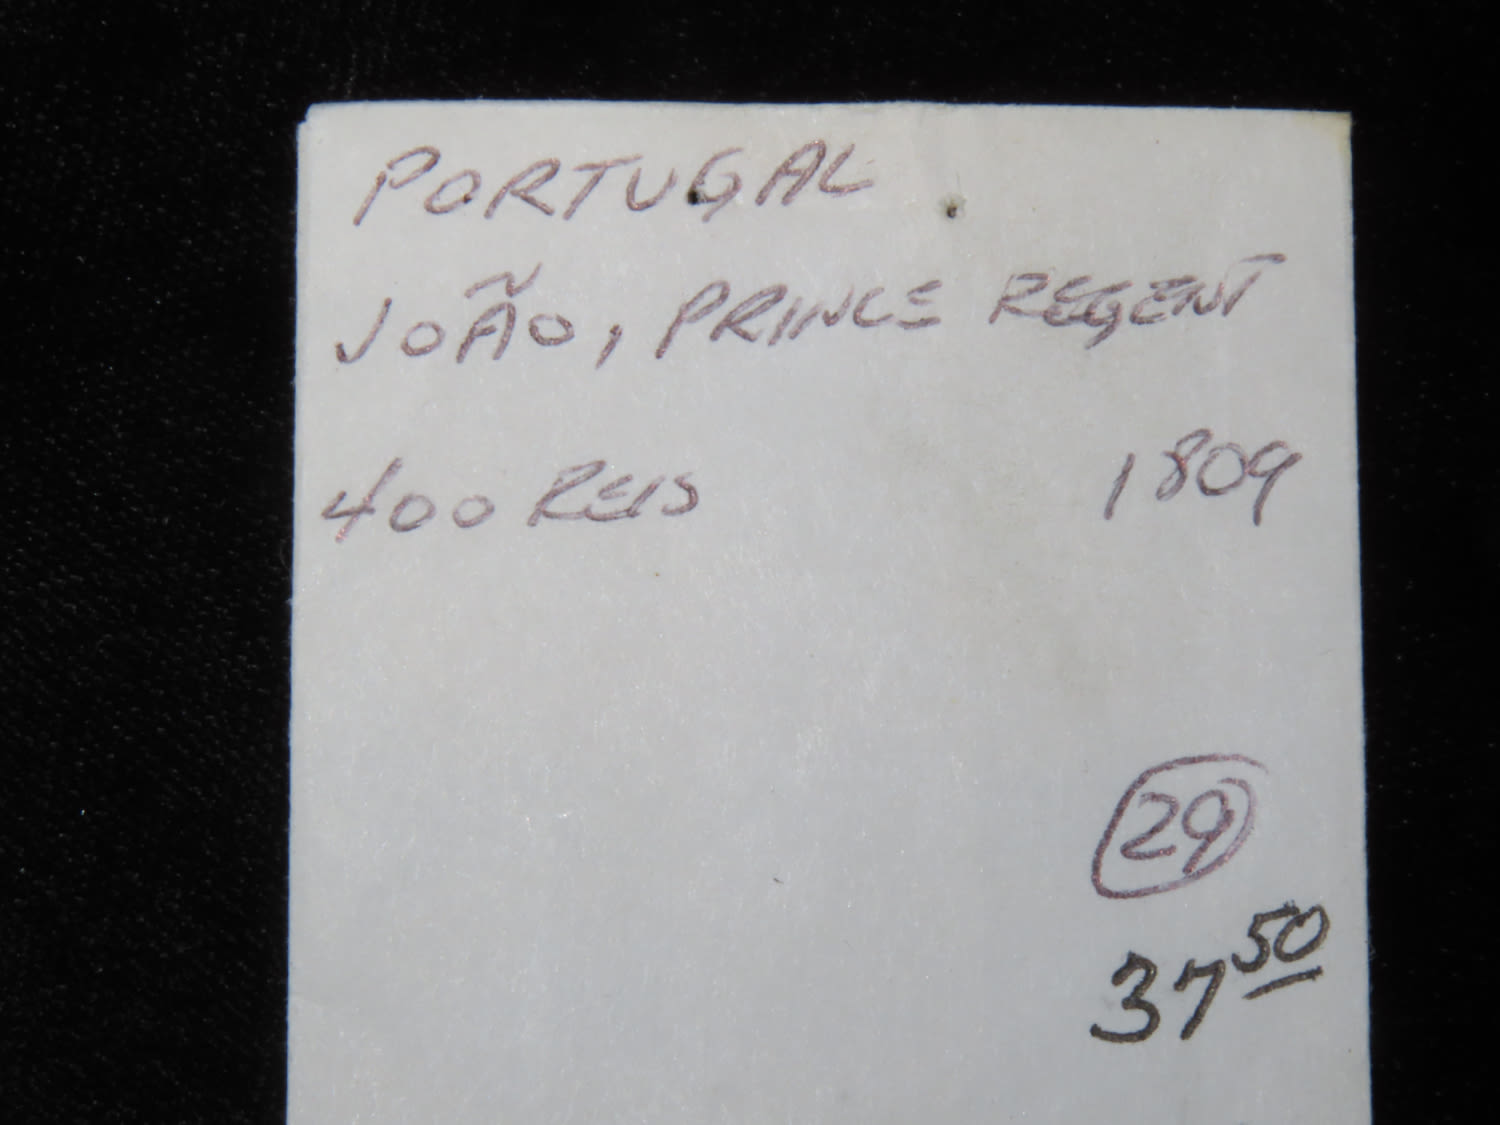 PORTUGAL
JOÃO, PRINCE REGENT
400 REIS 1809
29
37 50